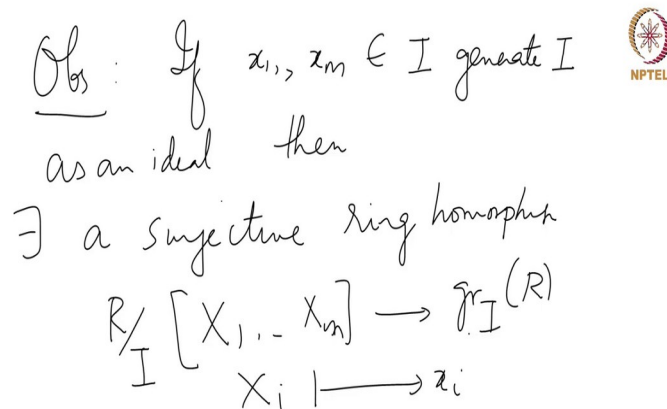 Obs: If x₁,, xₘ ∈ I generate I
NPTEL
as an ideal then
∃ a surjective ring homorphism
R/I [X₁,.. Xₘ] → gr_I(R)
Xᵢ ↦ xᵢ